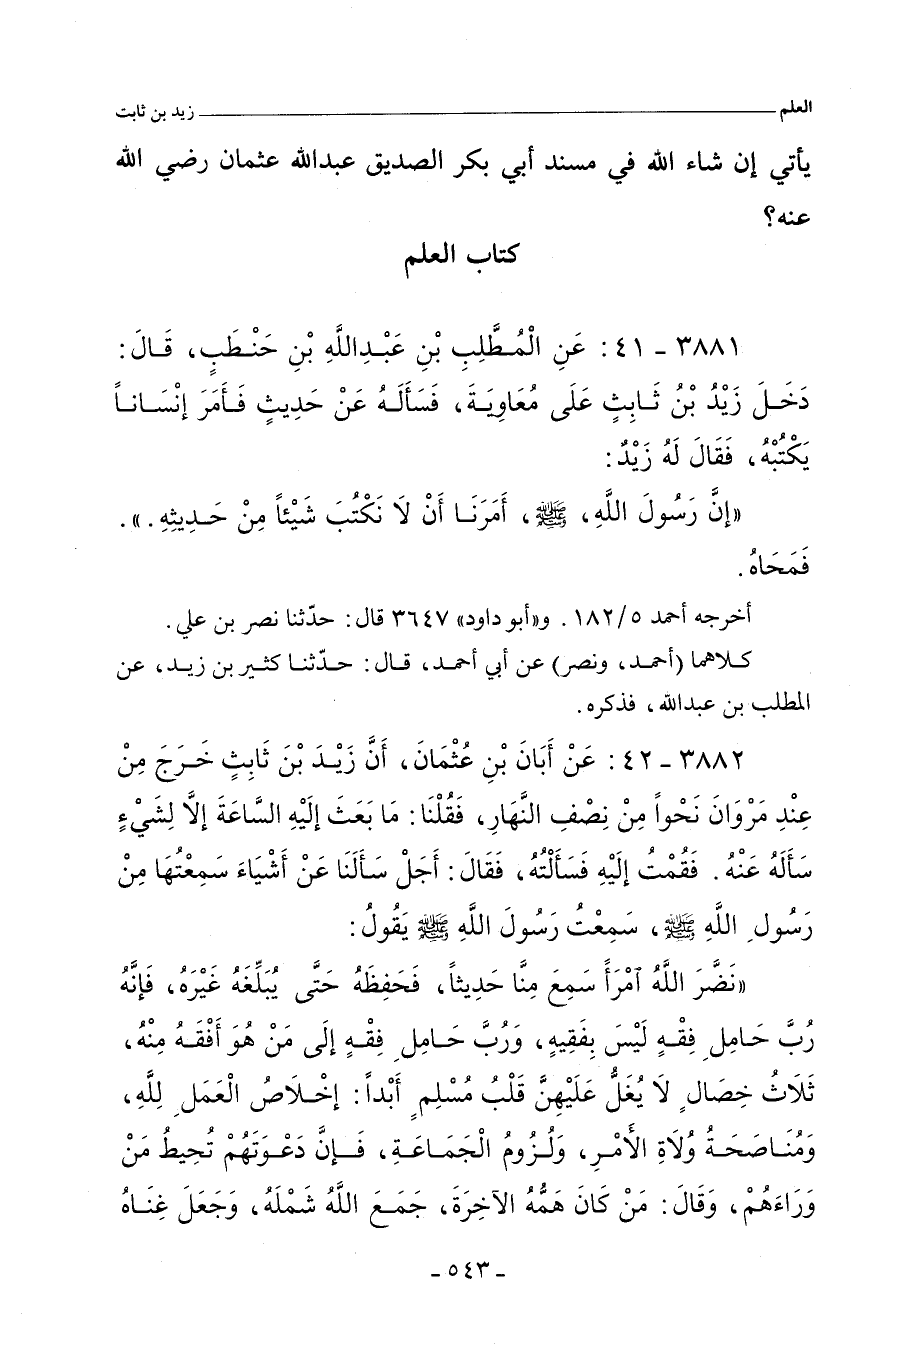 العلم ـــــــــــــــــ زيد بن ثابت
يأتي إن شاء الله في مسند أبي بكر الصديق عبدالله عثمان رضي الله
عنه؟
كتاب العلم
٣٨٨١ - ٤١: عَنِ الْمُطَّلِبِ بْنِ عَبْدِاللَّهِ بْنِ حَنْطَبٍ، قَالَ:
دَخَلَ زَيْدُ بْنُ ثَابِتٍ عَلَى مُعَاوِيَةَ، فَسَأَلَهُ عَنْ حَدِيثٍ فَأَمَرَ إِنْسَاناً
يَكْتُبُهُ، فَقَالَ لَهُ زَيْدٌ:
«إِنَّ رَسُولَ اللَّهِ، ﷺ، أَمَرَنَا أَنْ لَا نَكْتُبَ شَيْئاً مِنْ حَدِيثِهِ.».
فَمَحَاهُ.
أخرجه أحمد ٥/١٨٢. و«أبو داود» ٣٦٤٧ قال: حدّثنا نصر بن علي.
كلاهما (أحمد، ونصر) عن أبي أحمد، قال: حدّثنا كثير بن زيد، عن
المطلب بن عبدالله، فذكره.
٣٨٨٢ - ٤٢: عَنْ أَبَانَ بْنِ عُثْمَانَ، أَنَّ زَيْدَ بْنَ ثَابِتٍ خَرَجَ مِنْ
عِنْدِ مَرْوَانَ نَحْواً مِنْ نِصْفِ النَّهَارِ، فَقُلْنَا: مَا بَعَثَ إِلَيْهِ السَّاعَةَ إِلَّا لِشَيْءٍ
سَأَلَهُ عَنْهُ. فَقُمْتُ إِلَيْهِ فَسَأَلْتُهُ، فَقَالَ: أَجَلْ سَأَلَنَا عَنْ أَشْيَاءَ سَمِعْتُهَا مِنْ
رَسُولِ اللَّهِ ﷺ، سَمِعْتُ رَسُولَ اللَّهِ ﷺ يَقُولُ:
«نَضَّرَ اللَّهُ آمْرَأً سَمِعَ مِنَّا حَدِيثاً، فَحَفِظَهُ حَتَّى يُبَلِّغَهُ غَيْرَهُ، فَإِنَّهُ
رُبَّ حَامِلِ فِقْهٍ لَيْسَ بِفَقِيهٍ، وَرُبَّ حَامِلِ فِقْهٍ إِلَى مَنْ هُوَ أَفْقَهُ مِنْهُ،
ثَلَاثُ خِصَالٍ لَا يُغَلُّ عَلَيْهِنَّ قَلْبُ مُسْلِمٍ أَبْداً: إِخْلَاصُ الْعَمَلِ لِلَّهِ،
وَمُنَاصَحَةُ وُلَاةِ الأَمْرِ، وَلُزُومُ الْجَمَاعَةِ، فَإِنَّ دَعْوَتَهُمْ تُحِيطُ مَنْ
وَرَاءَهُمْ، وَقَالَ: مَنْ كَانَ هَمُّهُ الآخِرَةَ، جَمَعَ اللَّهُ شَمْلَهُ، وَجَعَلَ غِنَاهُ
- ٥٤٣ -